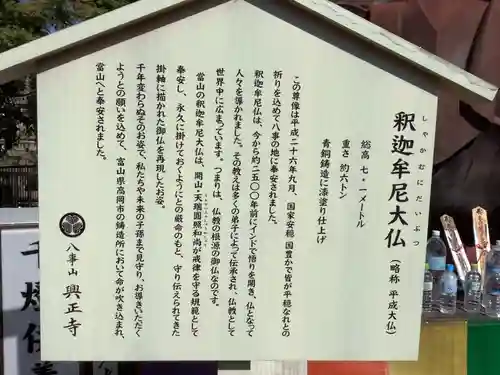 釈迦牟尼大仏
しゃかむにだいぶつ
(略称 平成大仏)
総高 七・一メートル
重さ 約六トン
青銅鋳造に漆塗り仕上げ
この尊像は平成二十六年九月、国家安穏・国豊かで皆が平穏なれとの
祈りを込めて八事の地に奉安されました。
釈迦牟尼仏は、今から約二五〇〇年前にインドで悟りを開き、仏となって
人々を導かれました。その教えは多くの弟子によって伝承され、仏教として
世界中に広まっています。つまりは、仏教の根源の御仏なのです。
当山の釈迦牟尼大仏は、開山・天瑞圓照和尚が戒律を守る規範として
奉安し、永久に掛けておくようにとの厳命のもと、守り伝えられてきた
掛軸に描かれた御仏を再現したお姿。
千年変わらぬそのお姿で、私たちや未来の子孫まで見守り、お導きいただく
ようとの願いを込めて、富山県高岡市の鋳造所において命が吹き込まれ、
富山へと奉安されました。
八事山 興正寺
千燈伝